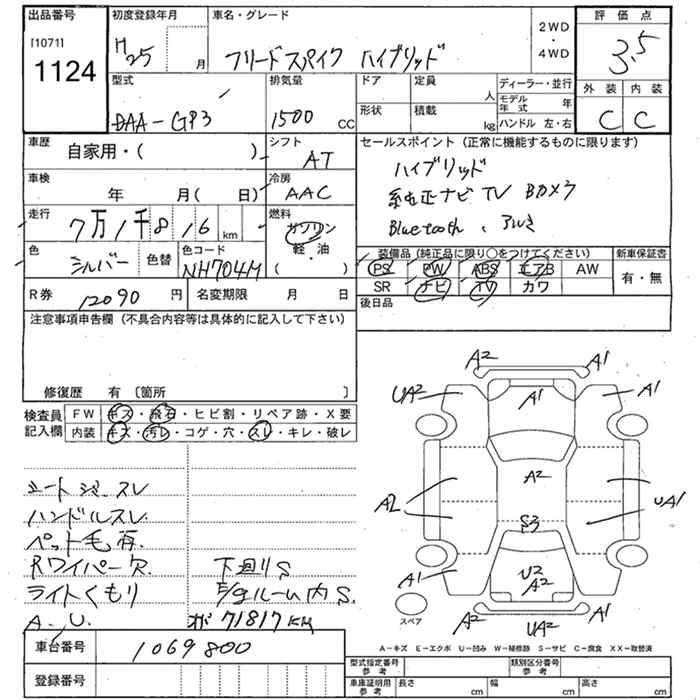 出品番号
[1071]
1124
初度登録年月
H25 月
車名・グレード
フリードスパイク ハイブリッド
2WD
・
4WD
評価点
3.5
外装 内装
C C
型式
DAA-GP3
排気量
1500 cc
ドア 定員 人
形状 積載 kg
ディーラー・並行
モデル年式 年
ハンドル 左・右
車歴
自家用・( )
シフト
AT
車検
年 月( 日)
冷房
AAC
走行
7万1千816 km
燃料
ガソリン
軽・油
( )
色
シルバー
色替
色コード
NH704M
R券 12090 円
名変期限 月 日
セールスポイント(正常に機能するものに限ります)
ハイブリッド
純正ナビ TV Bカメラ
Bluetooth、アルミ
装備品(純正品に限り○をつけてください)
新車保証書
PS PW ABS エアB AW
SR ナビ TV カワ
有・無
後日品
注意事項申告欄(不具合内容等は具体的に記入して下さい)
修復歴 有〔箇所 〕
検査員記入欄
FW キズ・飛石・ヒビ割・リペア跡・X要
内装 キズ・汚レ・コゲ・穴・スレ・キレ・破レ
シート シミ スレ
ハンドルスレ
ペット毛有
Rワイパー欠
ライトくもり
A.U.
下廻りS
E/gルーム内S
71817km
車台番号 1069800
登録番号
A2 A1
UA2 A1 A1
A2
A2 UA1
S3
A1 U2 A2 A1
A2 UA2 A1
スペア
A-キズ E-エクボ U-凹み W-補修跡 S-サビ C-腐食 XX-取替済
型式指定番号 参考
類別区分番号 参考
車庫証明用 参考 長さ cm 幅 cm 高さ cm